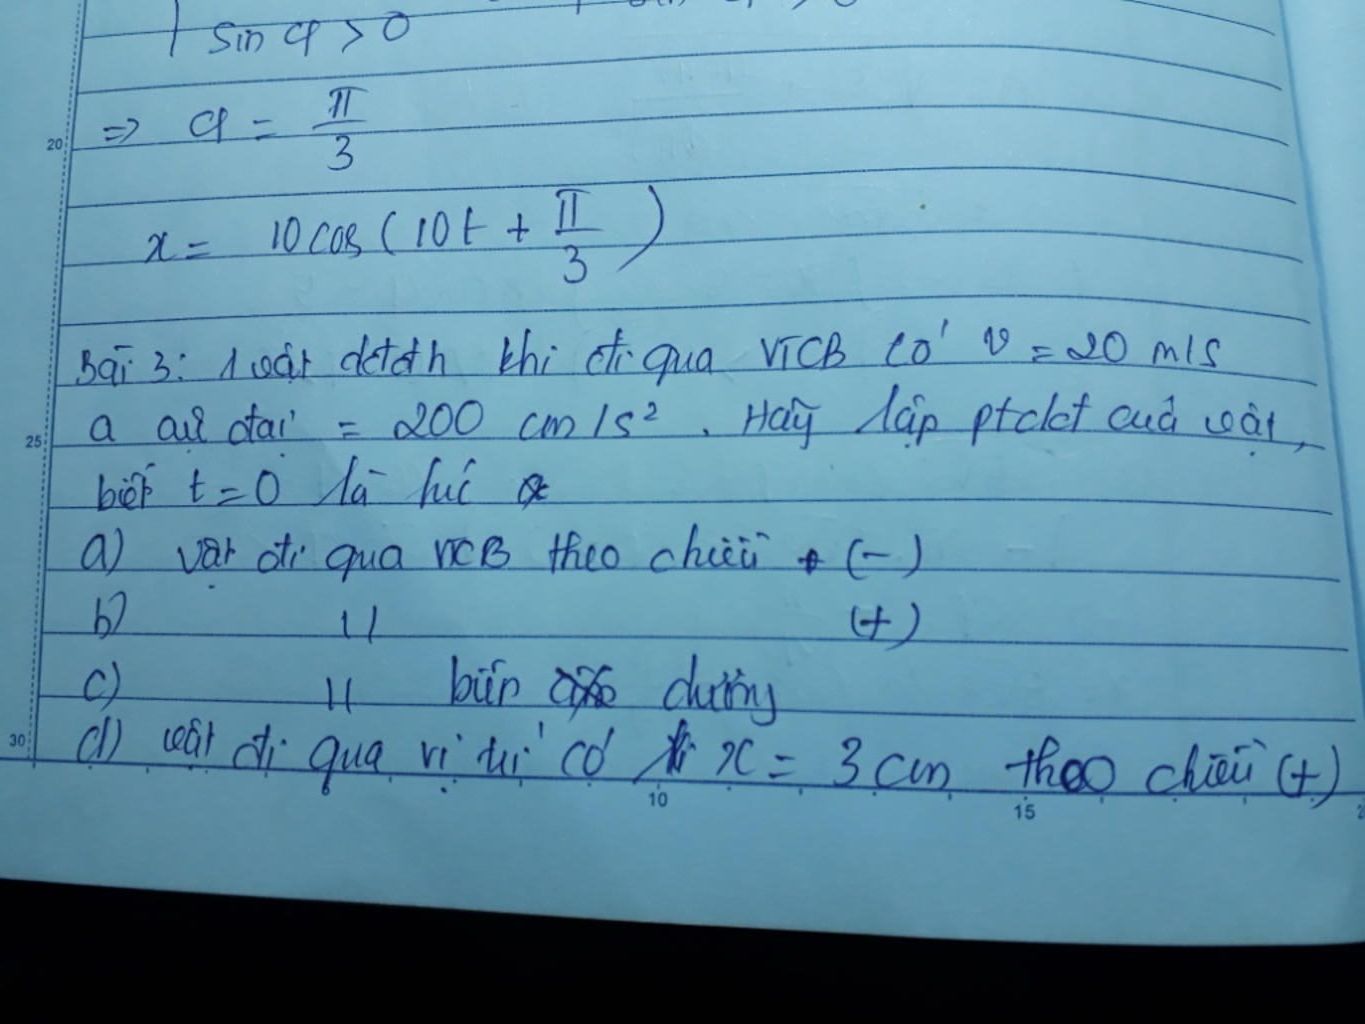 sin φ > 0
20
=> φ = π/3
x = 10 cos ( 10t + π/3 )
Bài 3: 1 vật dđđh khi đi qua VTCB có v = 20 m/s
25
a cực đại = 200 cm/s². Hãy lập ptdđ của vật,
biết t = 0 là lúc
a) vật đi qua VTCB theo chiều (-)
b) " (+)
c) " biên dương
30
d) vật đi qua vị trí có x = 3 cm theo chiều (+)
10 15 2